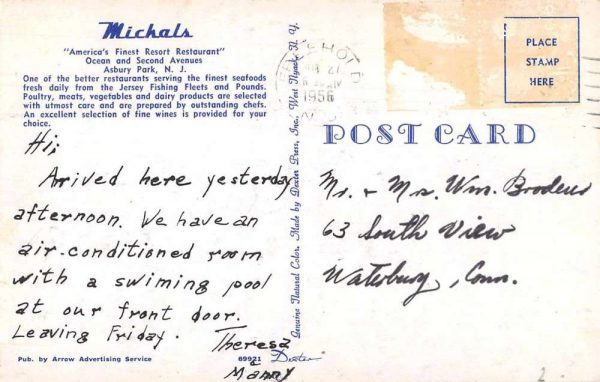 Michals
"America's Finest Resort Restaurant"
Ocean and Second Avenues
Asbury Park, N. J.
One of the better restaurants serving the finest seafoods
fresh daily from the Jersey Fishing Fleets and Pounds.
Poultry, meats, vegetables and dairy products are selected
with utmost care and are prepared by outstanding chefs.
An excellent selection of fine wines is provided for your
choice.
Hi,
Arrived here yesterday
afternoon. We have an
air-conditioned room
with a swiming pool
at our front door.
Leaving Friday. Theresa
Manny
Pub. by Arrow Advertising Service
69921 Dexter
Genuine Natural Color. Made by Dexter Press, Inc., West Nyack, N. Y.
1956
PLACE
STAMP
HERE
POST CARD
Mr. + Mrs. Wm. Brodeur
63 South View
Waterbury, Conn.
2